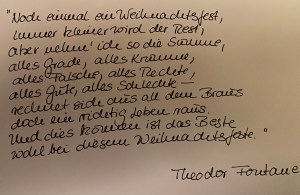 "Noch einmal ein Weihnachtsfest,
immer kleiner wird der Rest,
aber nehm' ich so die Summe,
alles Grade, alles Krumme,
alles Falsche, alles Rechte,
alles Gute, alles Schlechte –
rechnet sich aus all dem Braus
doch ein richtig Leben raus.
Und dies können ist das Beste
wohl bei diesem Weihnachtsfeste."
Theodor Fontane